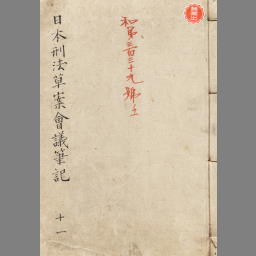 和第三百三十九號ノ土
日本刑法草案會議筆記
十一